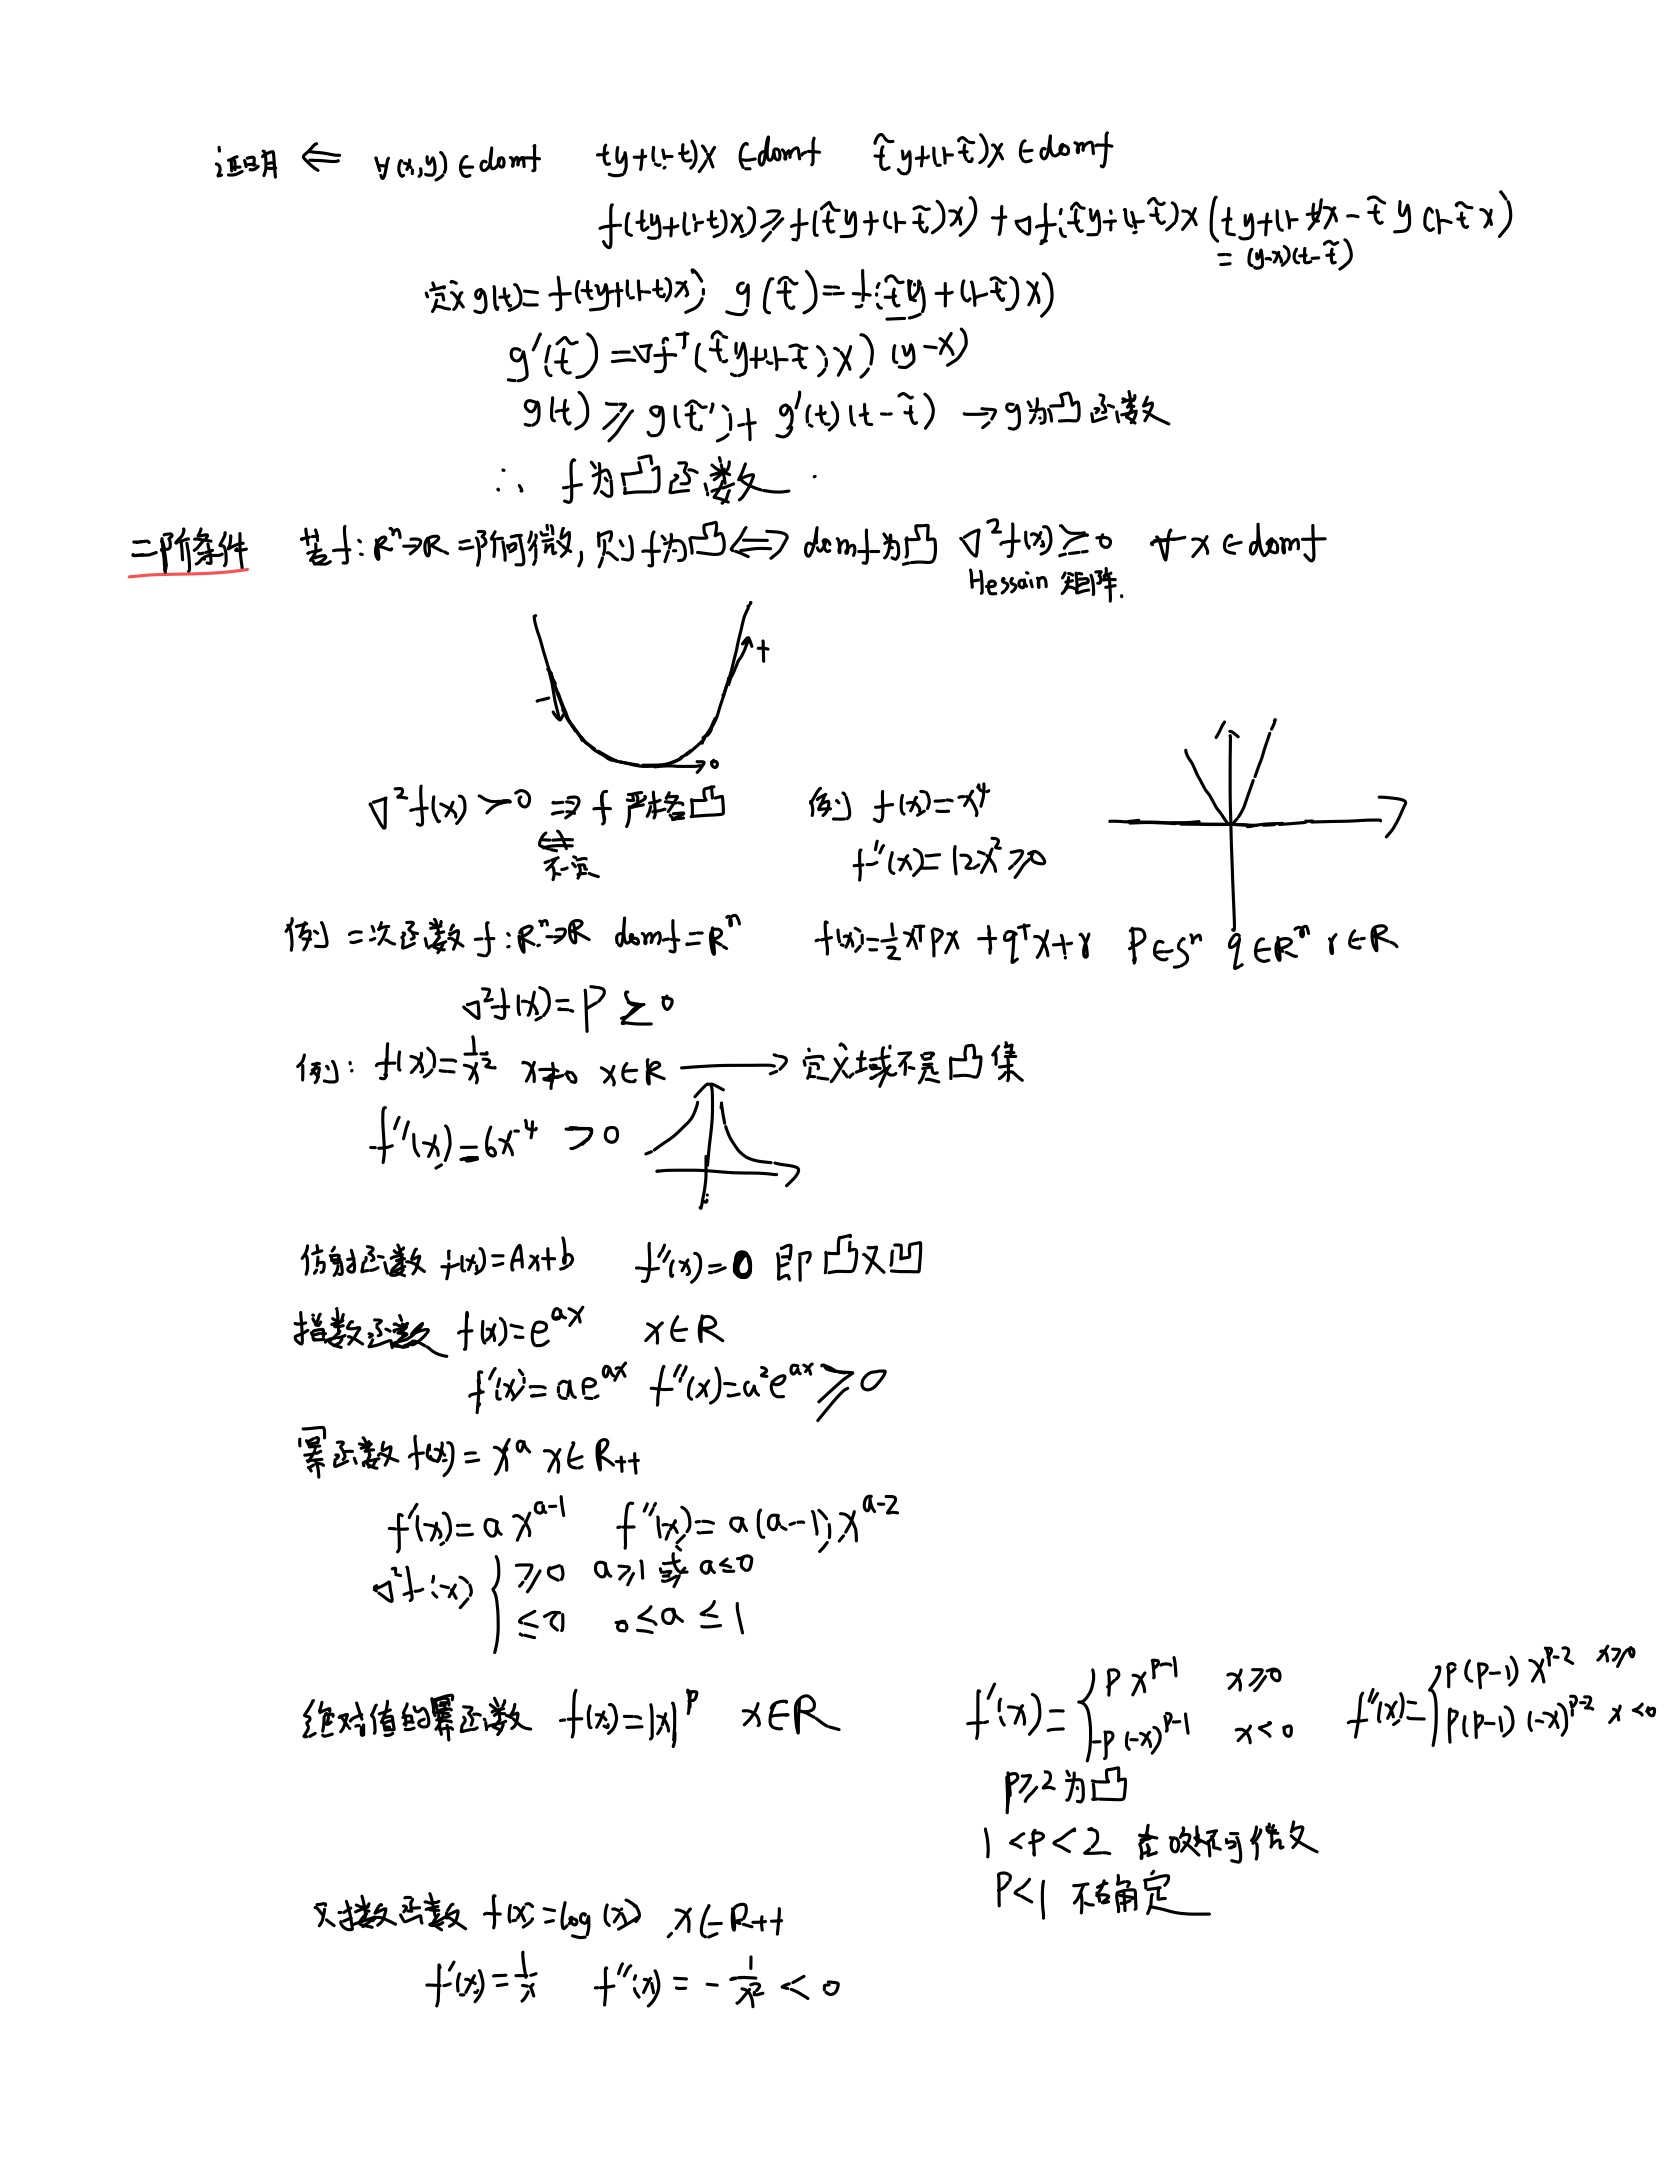 证明 ⇐ ∀(x,y)∈domf ty+(1-t)x ∈domf t̃y+(1-t̃)x ∈domf
f(ty+(1-t)x)≥f(t̃y+(1-t̃)x)+∇f(t̃y+(1-t̃)x(ty+(1-t)x-t̃y(1-t̃x)
=(y-x)(t-t̃)
定义g(t)=f(ty+(1-t)x) g(t̃)=f(t̃y+(1-t̃)x)
g'(t̃)=∇fᵀ(t̃y+(1-t̃)x)(y-x)
g(t)≥g(t̃')+g'(t)(t-t̃) →g为凸函数
∴ f为凸函数.
二阶条件 若f:Rⁿ→R二阶可微,则f为凸⇔domf为凸 ∇²f(x)⪰0 ∀x∈domf
Hessain 矩阵.
- +
→0
∇²f(x)≻0 ⇒f严格凸 例 f(x)=x⁴
⇍
不一定 f''(x)=12x²≥0
例 二次函数f:Rⁿ→R domf=Rⁿ f(x)=½xᵀPx+qᵀx+r P∈Sⁿ q∈Rⁿ r∈R
∇²f(x)=P⪰0
例: f(x)=1/x² x≠0 x∈R → 定义域不是凸集
f''(x)=6x⁻⁴ >0
仿射函数 f(x)=Ax+b f''(x)=0 即凸又凹
指数函数 f(x)=e^{ax} x∈R
f'(x)=ae^{ax} f''(x)=a²e^{ax}≥0
幂函数 f(x)=x^a x∈R₊₊
f'(x)=ax^{a-1} f''(x)=a(a-1)x^{a-2}
∇²f(x) { ≥0 a≥1或a≤0
≤0 0≤a≤1
绝对值的幂函数 f(x)=|x|^p x∈R f'(x)={ px^{p-1} x≥0 f''(x)={ p(p-1)x^{p-2} x≥0
-p(-x)^{p-1} x<0 p(p-1)(-x)^{p-2} x<0
p≥2为凸
1<p<2 在0处不可微
p<1 不确定
对数函数 f(x)=log(x) x∈R₊₊
f'(x)=1/x f''(x)=-1/x²<0